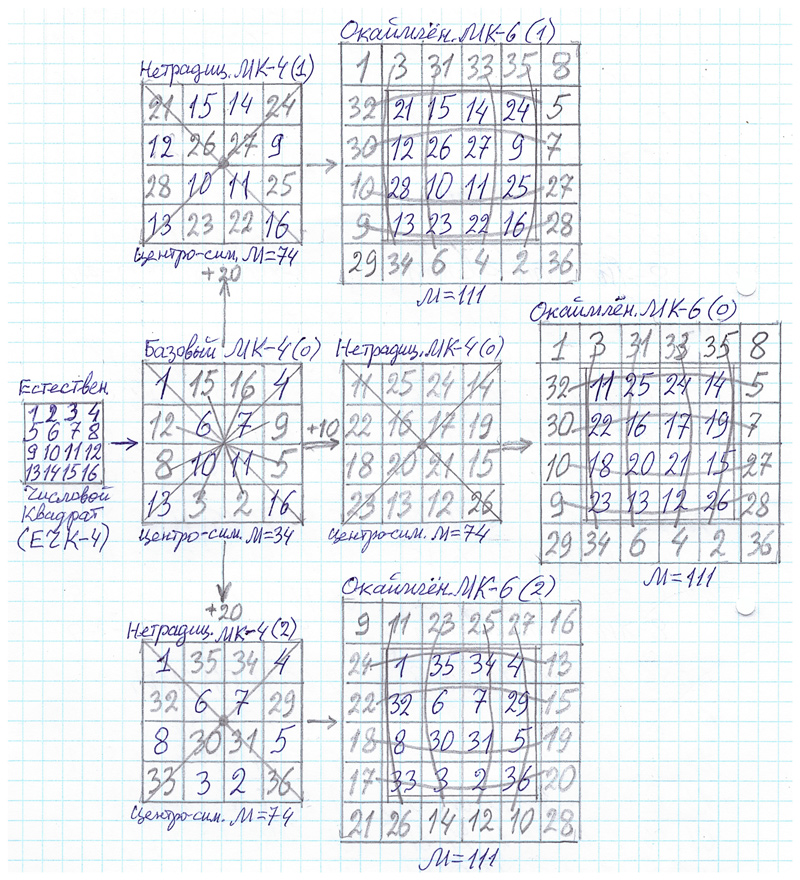 Окаймлён. МК-6 (1)
1 3 31 33 35 8
32 21 15 14 24 5
30 12 26 27 9 7
10 28 10 11 25 27
9 13 23 22 16 28
29 34 6 4 2 36
М=111
Нетрадиц. МК-4 (1)
21 15 14 24
12 26 27 9
28 10 11 25
13 23 22 16
Центро-сим. М=74
+20
Базовый МК-4 (0)
1 15 16 4
12 6 7 9
8 10 11 5
13 3 2 16
Центро-сим. М=34
Естествен.
1 2 3 4
5 6 7 8
9 10 11 12
13 14 15 16
Числовой
Квадрат
(ЕЧК-4)
+10
Нетрадиц. МК-4 (0)
11 25 24 14
22 16 17 19
18 20 21 15
23 13 12 26
Центро-сим. М=74
Окаймлён. МК-6 (0)
1 3 31 33 35 8
32 11 25 24 14 5
30 22 16 17 19 7
10 18 20 21 15 27
9 23 13 12 26 28
29 34 6 4 2 36
М=111
+20
Нетрадиц. МК-4 (2)
1 35 34 4
32 6 7 29
8 30 31 5
33 3 2 36
Центро-сим. М=74
Окаймлён. МК-6 (2)
9 11 23 25 27 16
24 1 35 34 4 13
22 32 6 7 29 15
18 8 30 31 5 19
17 33 3 2 36 20
21 26 14 12 10 28
М=111